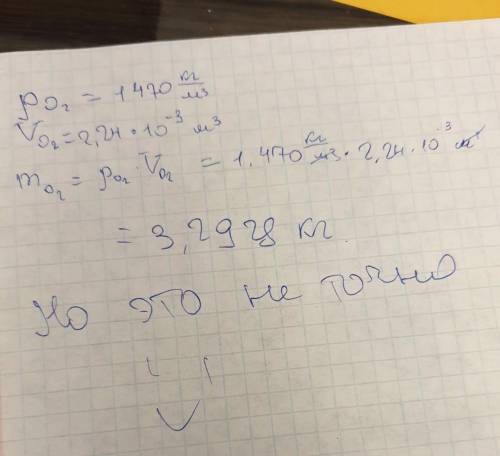 ρO₂ = 1470 кг/м³
VO₂ = 2,24 · 10⁻³ м³
mO₂ = ρO₂ · VO₂ = 1.470 кг/м³ · 2,24 · 10⁻³ м³
= 3,2928 кг.
Но это не точно